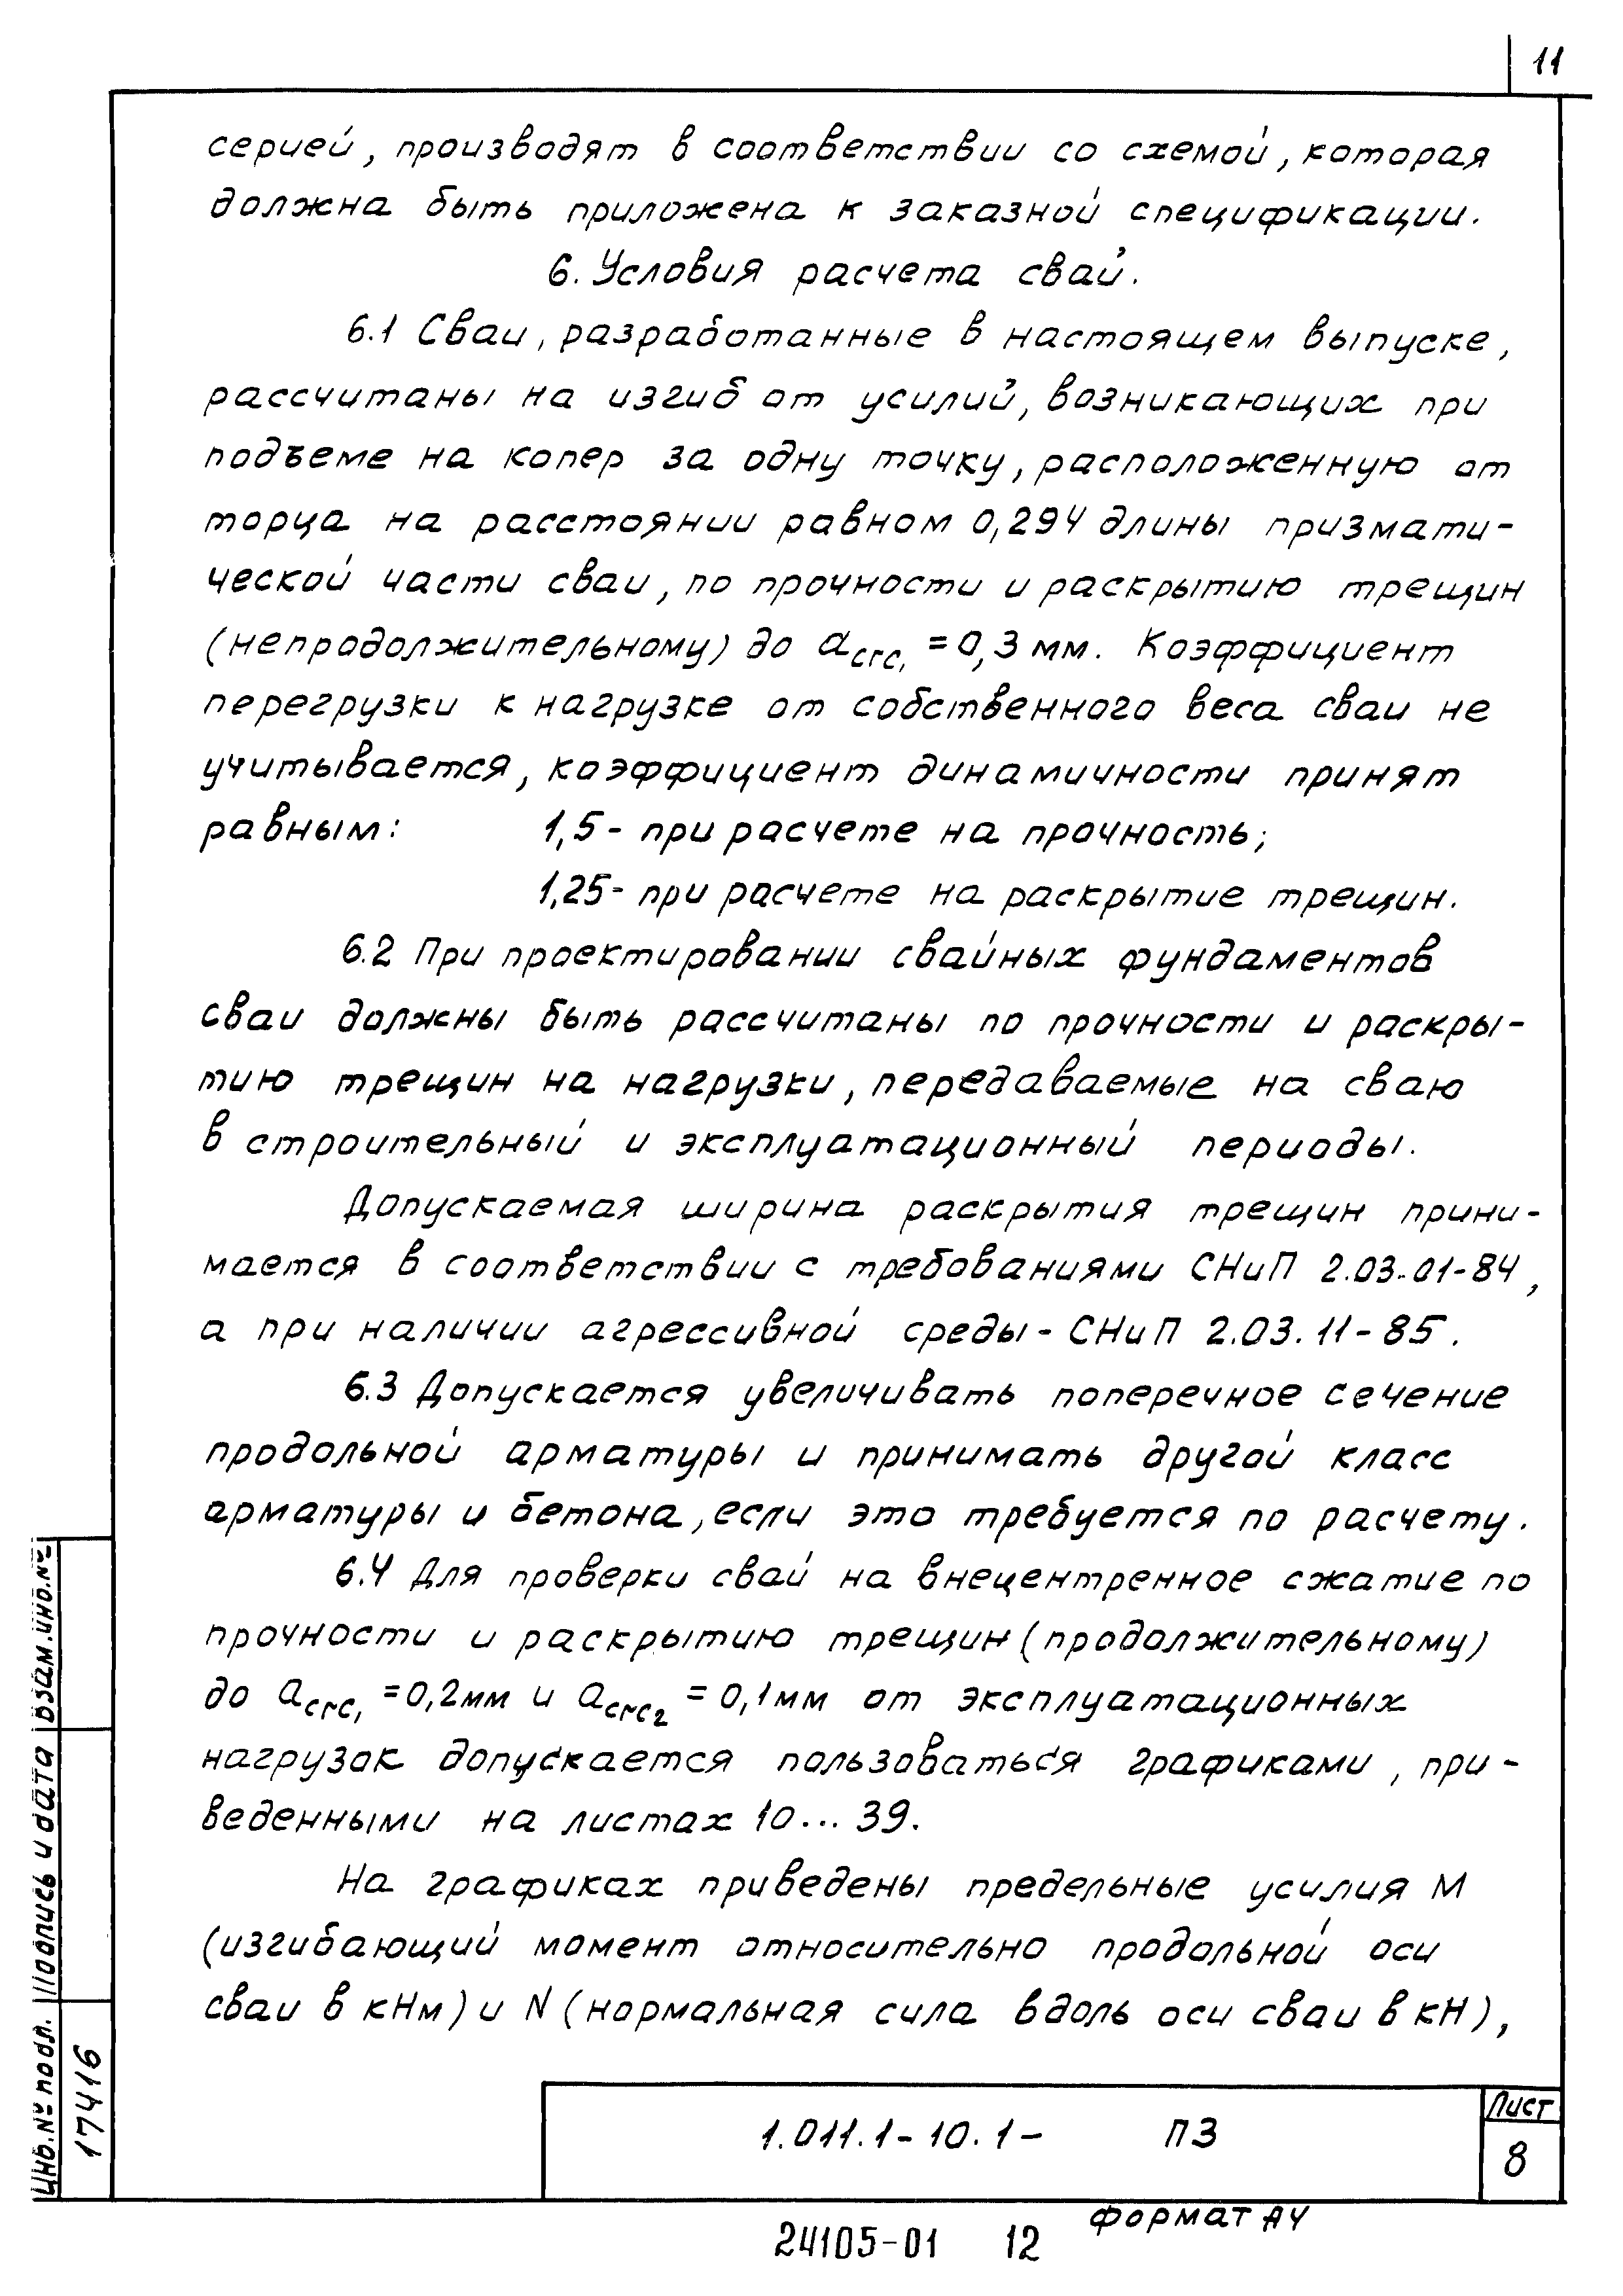 11
серией, производят в соответствии со схемой, которая
должна быть приложена к заказной спецификации.
6. Условия расчета свай.
6.1 Сваи, разработанные в настоящем выпуске,
рассчитаны на изгиб от усилий, возникающих при
подъеме на копер за одну точку, расположенную от
торца на расстоянии равном 0,294 длины призмати-
ческой части сваи, по прочности и раскрытию трещин
(непродолжительному) до acrc, = 0,3 мм. Коэффициент
перегрузки к нагрузке от собственного веса сваи не
учитывается, коэффициент динамичности принят
равным: 1,5 - при расчете на прочность;
1,25 - при расчете на раскрытие трещин.
6.2 При проектировании свайных фундаментов
сваи должны быть рассчитаны по прочности и раскры-
тию трещин на нагрузки, передаваемые на сваю
в строительный и эксплуатационный периоды.
Допускаемая ширина раскрытия трещин прини-
мается в соответствии с требованиями СНиП 2.03.01-84,
а при наличии агрессивной среды - СНиП 2.03.11-85.
6.3 Допускается увеличивать поперечное сечение
продольной арматуры и принимать другой класс
арматуры и бетона, если это требуется по расчету.
6.4 Для проверки свай на внецентренное сжатие по
прочности и раскрытию трещин (продолжительному)
до acrc, = 0,2мм и acrc2 = 0,1мм от эксплуатационных
нагрузок допускается пользоваться графиками, при-
веденными на листах 10...39.
На графиках приведены предельные усилия М
(изгибающий момент относительно продольной оси
сваи в кНм) и N (нормальная сила вдоль оси сваи в кН),
Взам.инв.№
Подпись и дата
Инв.№ подл.
17416
1.011.1-10.1- ПЗ
Лист
8
Формат А4
24105-01 12